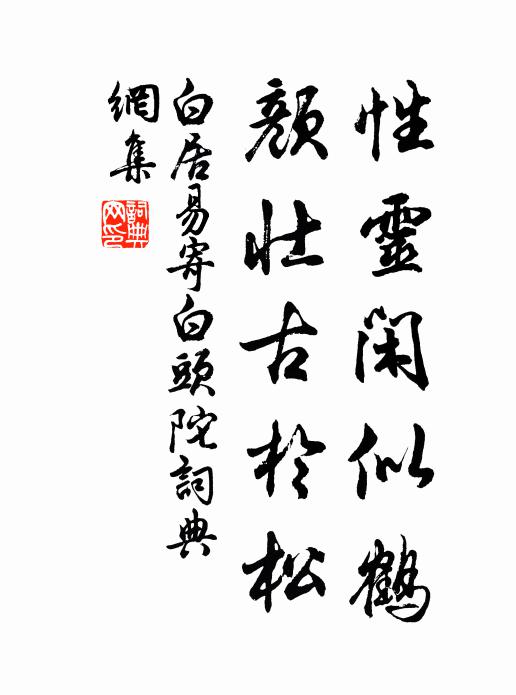 性靈閑似鶴
顏壯古於松
白居易寄白頭陀詞典
網集
詞典網印